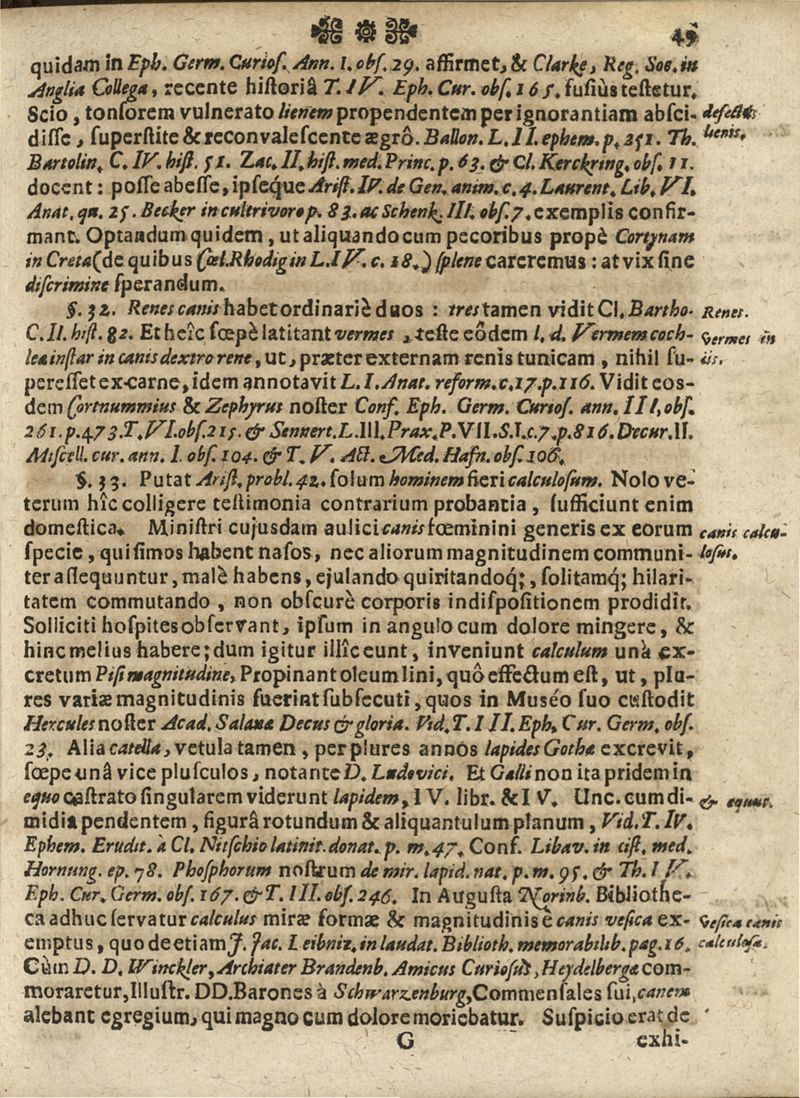 49
quidam in Eph. Germ. Curios. Ann. I. obs. 29. affirmet, & Clarke, Reg. Soc. in
Anglia Collega, recente historiâ T. IV. Eph. Cur. obs. 165. fusiùs testetur.
Scio, tonsorem vulnerato lienem propendentem per ignorantiam absci-
defectus
disse, superstite & reconvalescente ægrô. Ballon. L. II. ephem. p. 251. Th.
lienis.
Bartolin. C. IV. hist. 51. Zac. II. hist. med. Princ. p. 63. & Cl. Kerckring. obs. 11.
docent: posse abesse, ipseque Arist. IV. de Gen. anim. c. 4. Laurent. Lib. VI.
Anat. qu. 25. Becker in cultrivoro p. 83. ac Schenk. III. obs. 7. exemplis confir-
mant. Optandum quidem, ut aliquando cum pecoribus propè Cortynam
in Creta (de quibus Cœl. Rhodigin L. IV. c. 18.) splene careremus: at vix sine
discrimine sperandum.
§. 32. Renes canis habet ordinariè duos: tres tamen vidit Cl. Bartho.
Renes.
C. II. hist. 82. Et heîc sœpè latitant vermes, teste eôdem l. d. Vermem coch-
Vermes in
lea instar in canis dextro rene, ut, præter externam renis tunicam, nihil su-
iis.
peresset ex carne, idem annotavit L. I. Anat. reform. c. 17. p. 116. Vidit eos-
dem Cortnummius & Zephyrus noster Conf. Eph. Germ. Curios. ann. III. obs.
261. p. 473. T. VI. obs. 215. & Sennert. L. III. Prax. P. VII. S. I. c. 7. p. 816. Decur. II.
Miscell. cur. ann. I. obs. 104. & T. V. Act. Med. Hafn. obs. 106.
§. 33. Putat Arist. probl. 42. solum hominem fieri calculosum. Nolo ve-
terum hîc colligere testimonia contrarium probantia, sufficiunt enim
domestica. Ministri cujusdam aulici canis fœminini generis ex eorum
canis calcu-
specie, qui simos habent nasos, nec aliorum magnitudinem communi-
losus.
ter assequuntur, malè habens, ejulando quiritandoq;, solitamq; hilari-
tatem commutando, non obscurè corporis indispositionem prodidit.
Solliciti hospites observant, ipsum in angulo cum dolore mingere, &
hinc melius habere; dum igitur illîc eunt, inveniunt calculum unà ex-
cretum Pisi magnitudine, Propinant oleum lini, quô effectum est, ut, plu-
res variæ magnitudinis fuerint subsecuti, quos in Muséo suo custodit
Hercules noster Acad. Salanæ Decus & gloria. Vid. T. III. Eph. Cur. Germ. obs.
23. Alia catella, vetula tamen, per plures annos lapides Gothæ excrevit,
sœpe unâ vice plusculos, notante D. Ludovici. Et Galli non ita pridem in
equo castrato singularem viderunt lapidem, IV. libr. & IV. Unc. cum di-
& equus.
midia pendentem, figurâ rotundum & aliquantulum planum, Vid. T. IV.
Ephem. Erudit. à Cl. Nitschio latinit. donat. p. m. 47. Conf. Libav. in cist. med.
Hornung. ep. 78. Phosphorum nostrum de mir. lapid. nat. p. m. 95. & Th. IV.
Eph. Cur. Germ. obs. 167. & T. III. obs. 246. In Augusta Norinb. Bibliothe-
ca adhuc servatur calculus miræ formæ & magnitudinis è canis vesica ex-
Vesica canis
emptus, quo de etiam J. Jac. Leibniz. in laudat. Biblioth. memorabilib. pag. 16.
calculosa.
Cùm D. D. Winckler, Archiater Brandenb. Amicus Curiosus, Heydelbergæ com-
moraretur, Illustr. DD. Barones à Schwarzenburg, Commensales sui, canem
alebant egregium, qui magno cum dolore moriebatur. Suspicio erat de
G
exhi-